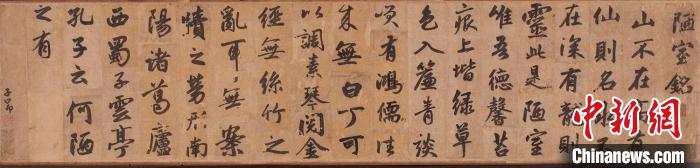 陋室銘
山不在高有
仙則名水不
在深有龍則
靈此是陋室
唯吾德馨苔
痕上堦緑草
色入簾青談
笑有鴻儒往
来無白丁可
以調素琴閱金
經無絲竹之
亂耳無案
牘之勞形南
陽諸葛廬
西蜀子雲亭
孔子云何陋
之有
子昂
中新网
Chinanews.com